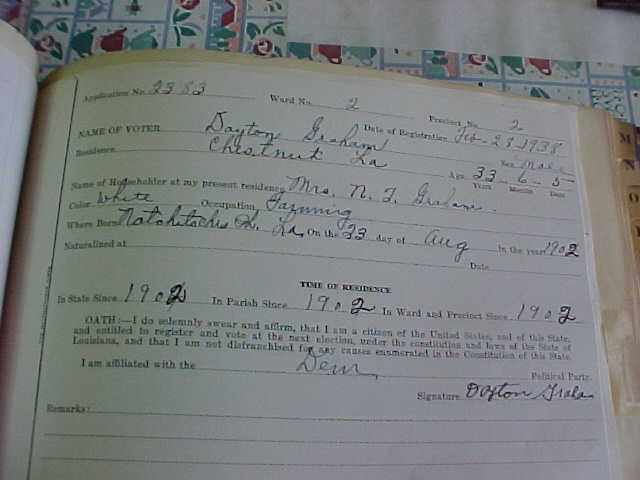 Application No. 2383 Ward No. 2 Precinct No. 2
NAME OF VOTER Dayton Graham Date of Registration Feb-28-1938
Residence Chestnut La Sex Male
Age 33-6-5
Years Months Days
Name of Householder at my present residence Mrs. N. T. Graham.
Color White Occupation Farming
Where Born Natchitoches Ph. La, On the 23 day of Aug in the year 1902
Naturalized at Date
TIME OF RESIDENCE
In State Since 1902 In Parish Since 1902 In Ward and Precinct Since 1902
OATH:—I do solemnly swear and affirm, that I am a citizen of the United States, and of this State,
and entitled to register and vote at the next election, under the constitution and laws of the State of
Louisiana, and that I am not disfranchised for any causes enumerated in the Constitution of this State.
I am affiliated with the Dem Political Party.
Signature Dayton Graha
Remarks: